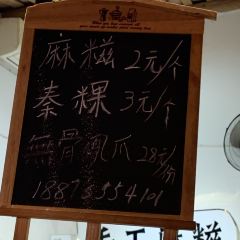 麻糍 2元/个
秦粿 3元/个
無骨鳳爪 28元/份
手工麻糍